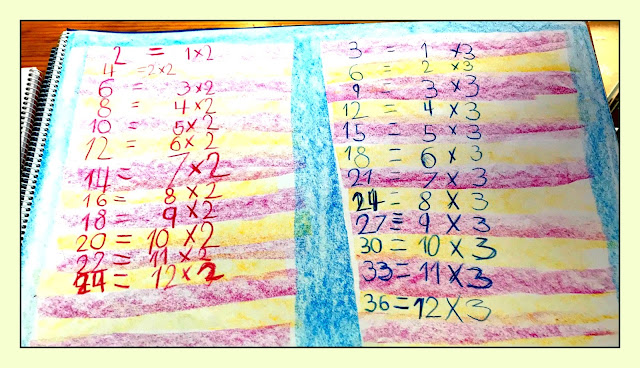 2 = 1×2
4 = 2×2
6 = 3×2
8 = 4×2
10 = 5×2
12 = 6×2
14 = 7×2
16 = 8×2
18 = 9×2
20 = 10×2
22 = 11×2
24 = 12×2
3 = 1×3
6 = 2×3
9 = 3×3
12 = 4×3
15 = 5×3
18 = 6×3
21 = 7×3
24 = 8×3
27 = 9×3
30 = 10×3
33 = 11×3
36 = 12×3